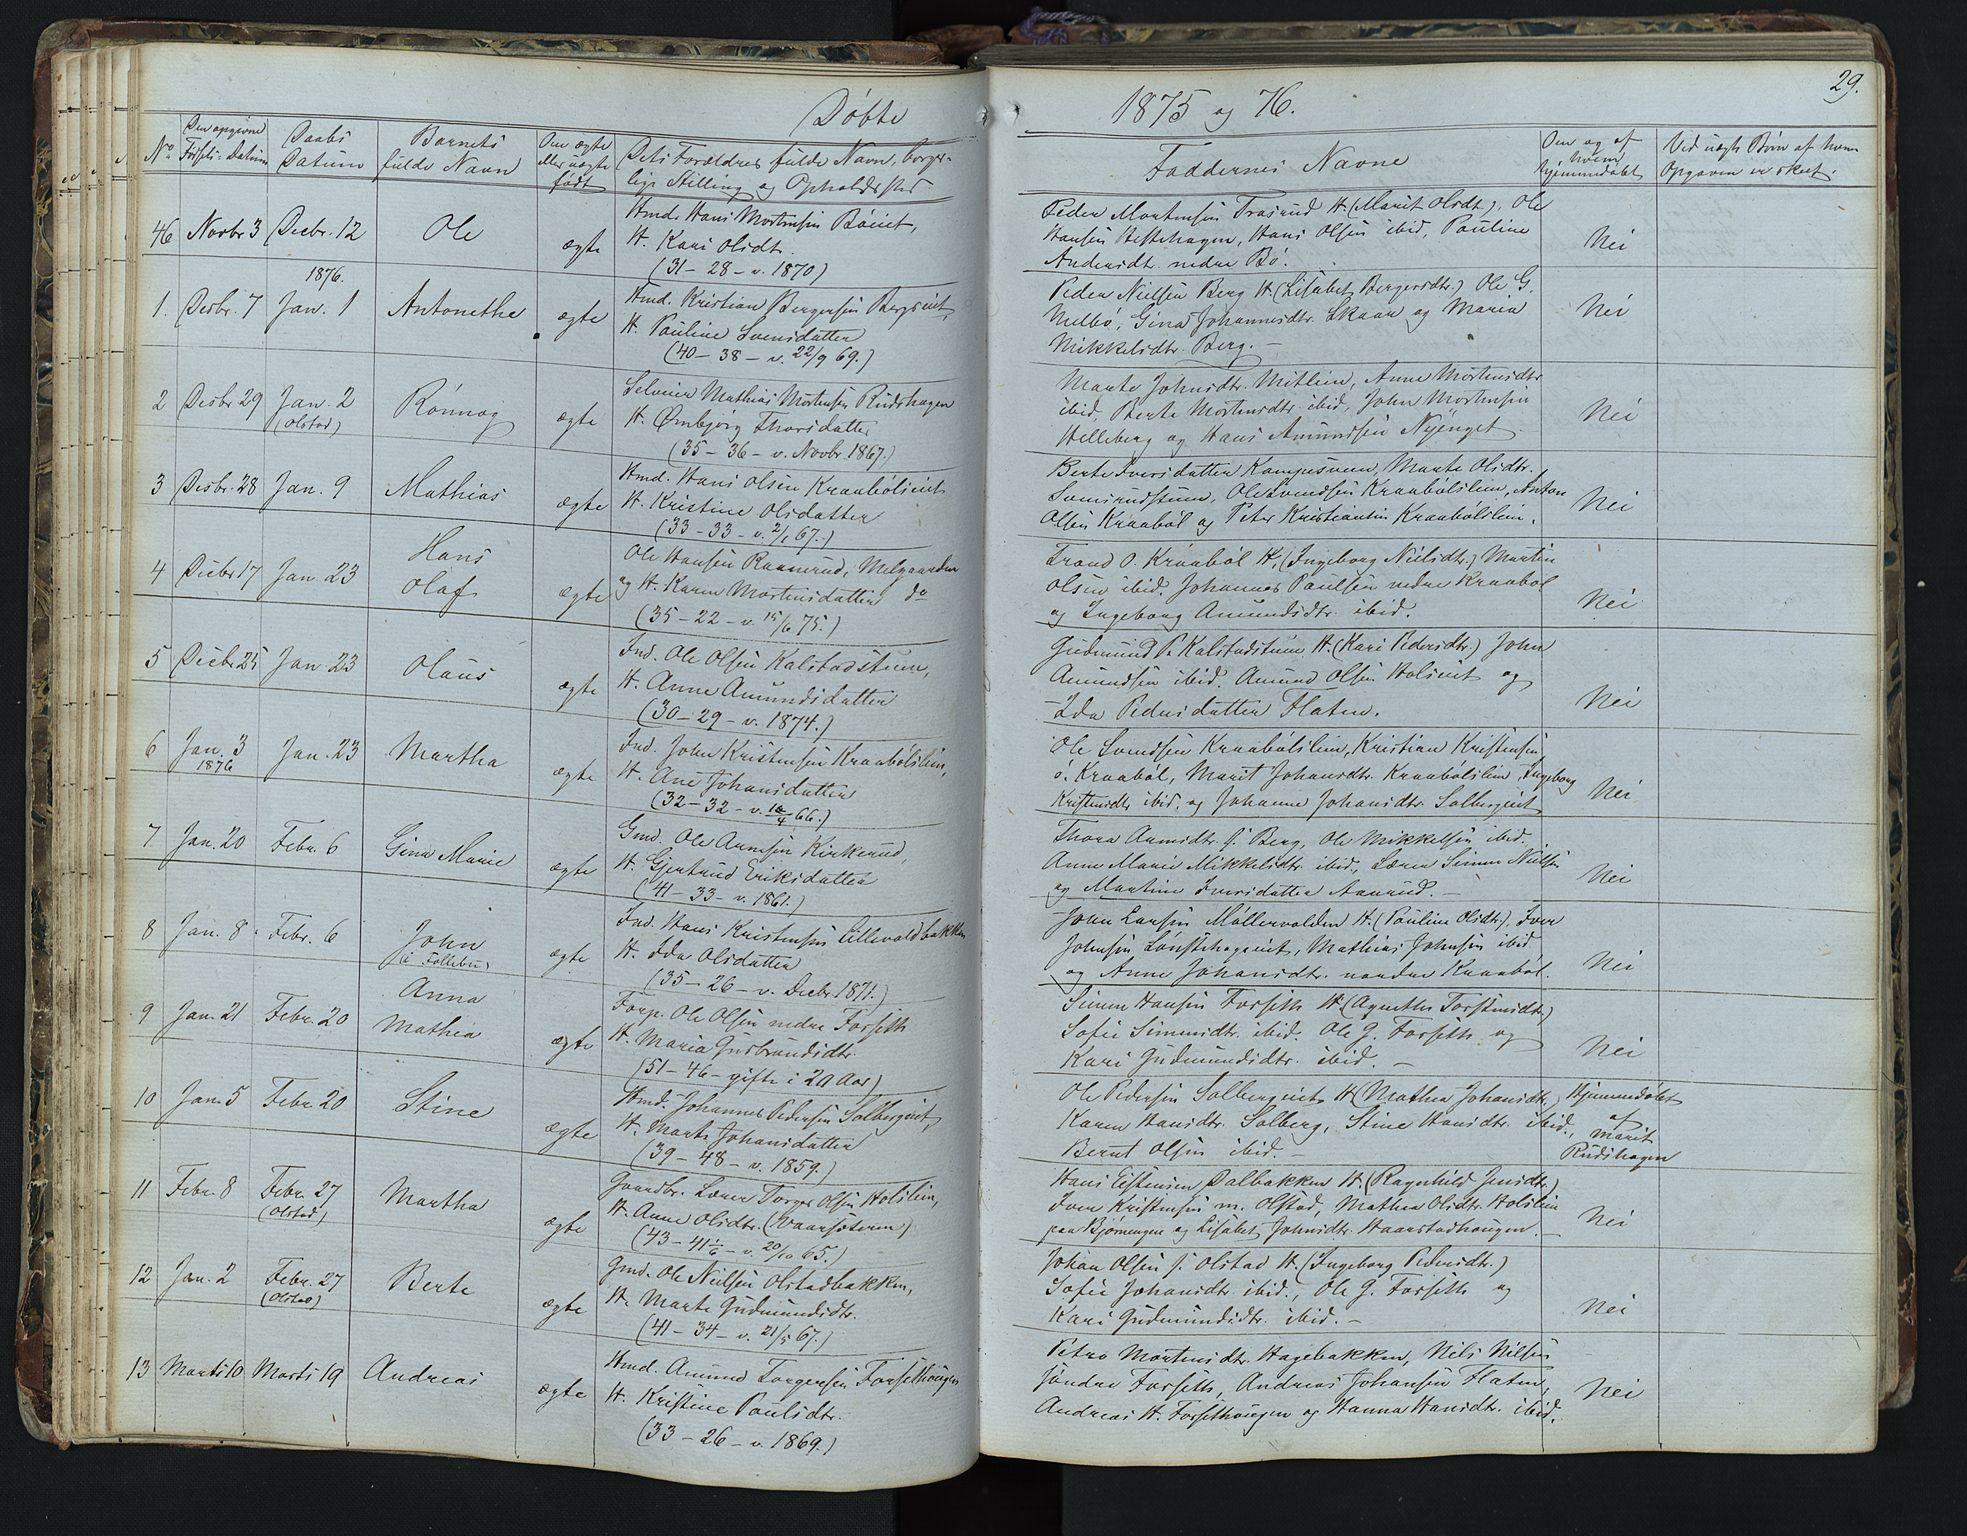 Døbte
1875 og 76.
29.
No
Den opgivne
Fødsels-Datum
Daabs
Datum
Barnets
fulde Navn
Om ægte
eller uægte
født
Dets Forældres fulde Navn, borger-
lige Stilling og Opholdssted
Faddernes Navne
Om og af
hvem
hjemmedøbt
Ved uægte Børn af hvem
Opgaven er skeet.
46 Novbr 3 Decbr. 12 Ole ægte
Hmd. Hans Mortensen Bøeiet,
H. Kari Olsdt.
(31-28-v. 1870)
Peder Mortensen Traserud H. (Marit Olsdt), Ole
Hansen Hestehagen, Hans Olsen ibid, Pauline
Andersdt. nedre Bø.
Nei
1876.
1. Desbr. 7 Jan. 1 Antonethe ægte
Hmd. Kristian Bergersen Bergseiet,
H. Pauline Svensdatter
(40-38-v. 22/9 69.)
Peder Nielsen Berg H. (Lisabet Bergersdtr.) Ole G.
Melbø, Gina Johannesdtr. Skaar og Maria
Mikkelsdtr. Berg. -
Nei
2 Desbr 29 Jan. 2 Rønnog ægte
(Olstad)
Selveier Mathias Mortensen Rudshagen
H. Ørnbjørg Thorsdatter
(35-36-v. Novbr. 1867.)
Marte Johnsdtr. Mitlien, Anne Mortensdtr
ibid, Berte Mortensdtr. ibid, John Mortensen
Helleberg og Hans Amundsen Nyenget.
Nei
3 Desbr. 28 Jan. 9 Mathias ægte
Hmd. Hans Olsen Kraabølseiet
H. Kristine Olsdatter
(33-33-v. 2/1 67.)
Berte Iversdatter Kampesveen, Marte Olsdtr.
Olesvendsen Kraabølslien, Anton
Olsen Kraabøl og Peter Kristiansen Kraabølslien.
Nei
4 Decbr 17 Jan. 23 Hans
Olaf ægte
Ole Hansen Raanerud, Melgaarden
og H. Karen Mortensdatter do
(35-22-v. 15/6 75.)
Trond O. Kraabøl H. (Ingeborg Nielsdtr.) Martin
Olsen ibid. Johannes Paulsen nedre Kraabøl
og Ingeborg Amundsdtr. ibid.
Nei
5 Decbr 25 Jan. 23 Olaus ægte
Ind. Ole Olsen Kalstadstuen,
H. Anne Amundsdatter
(30-29-v. 1874.)
Gudmund P. Kalstadstuen H. (Kari Pedersdtr.) John
Amundsen ibid. Amund Olsen Holseiet og
Ida Pedersdatter Flaten.
Nei
6 Jan. 3 Jan. 23 Martha ægte
1876
Ind. John Kristensen Kraabølslien,
H. Ane Johansdatter
(32-32-v. 10/4 66.)
Ole Svendsen Kraabølslien, Kristian Kristensen
ø. Kraabøl, Marit Johansdtr. Kraabølslien, Ingeborg
Kristensdtr. ibid. og Johanne Johansdtr. Solbergeiet
Nei
7 Jan. 20 Febr. 6 Gina Marie ægte
Gmd. Ole Arnesen Kirkerud,
H. Gjertrud Eriksdatter
(41-33-v. 1861.)
Thora Arnesdtr. s. Berg, Ole Mikkelsen ibid.
Anne Marie Mikkelsdtr. ibid, Lærer Simen Nielsen
og Martine Iversdatter Aanrud. -
Nei
8 Jan. 8. Febr. 6 John ægte
(i Follebu)
Ind. Hans Kristensen Lillevoldbakken
H. Ida Olsdatter
(35-26-v. Decbr. 1871.)
John Larsen Møllervolden H. (Pauline Olsdtr.), Iver
Johnsen Mathias Johnsen ibid
og Anne Johansdtr. nordre Kraabøl.
Nei
9 Jan. 21 Febr. 20 Anna
Mathea ægte
Forp. Ole Olsen nedre Forseth
H. Maria Gudbrandsdtr.
(51-46-gifte i 20 Aar)
Simen Hansen Forseth H. (Agnethe Torstensdtr.)
Sofie Simensdtr. ibid. Ole G. Forseth og
Kari Gudmundsdtr. ibid. -
Nei
10 Jan. 5 Febr. 20 Stine ægte
Hmd. Johannes Pedersen Solbergeiet,
H. Marte Johansdatter
(39-48-v. 1859.)
Ole Pedersen Solbergeiet, H. (Mathea Johansdtr.)
Karen Hansdtr. Solberg, Stine Hansdtr. ibid.,
Bernt Olsen ibid. -
Hjemmedøbt
af
Marit
Rudshagen
11 Febr. 8 Febr. 27 Martha ægte
(Olstad)
Gaardbr. Lærer Torger Olsen Holslien,
H. Anne Olsdtr. (Vaarsæteren)
(43-41 1/6-v. 20/10 65.)
Hans Eistensen Dalbakken H. (Ragnhild Jensdtr.)
Iver Kristensen m. Olstad, Mathea Olsdtr. Holslien
paa Bjørnengen og Lisabet Johnsdtr. Haarstadhaugen. -
Nei
12 Jan. 2 Febr. 27 Berte ægte
(Olstad)
Gmd. Ole Nielsen Olstadbakken,
H. Marte Gudmundsdtr.
(41-34-v. 21/5 67.)
Johan Olsen s. Olstad H. (Ingeborg Pedersdtr.)
Sofie Johansdtr. ibid., Ole G. Forseth og
Kari Gudmundsdtr. ibid. -
Nei
13 Marts 10 Marts 19 Andreas ægte
Hmd. Amund Torgersen Forsethougen
H. Kristine Paulsdtr.
(33-26-v. 1869.)
Petra Mortensdtr. Hagebakken, Nils Nilsen
søndre Forseth, Andreas Johansen Flaten,
Andreas H. Forsethougen og Hanna Hansdtr. ibid.
Nei